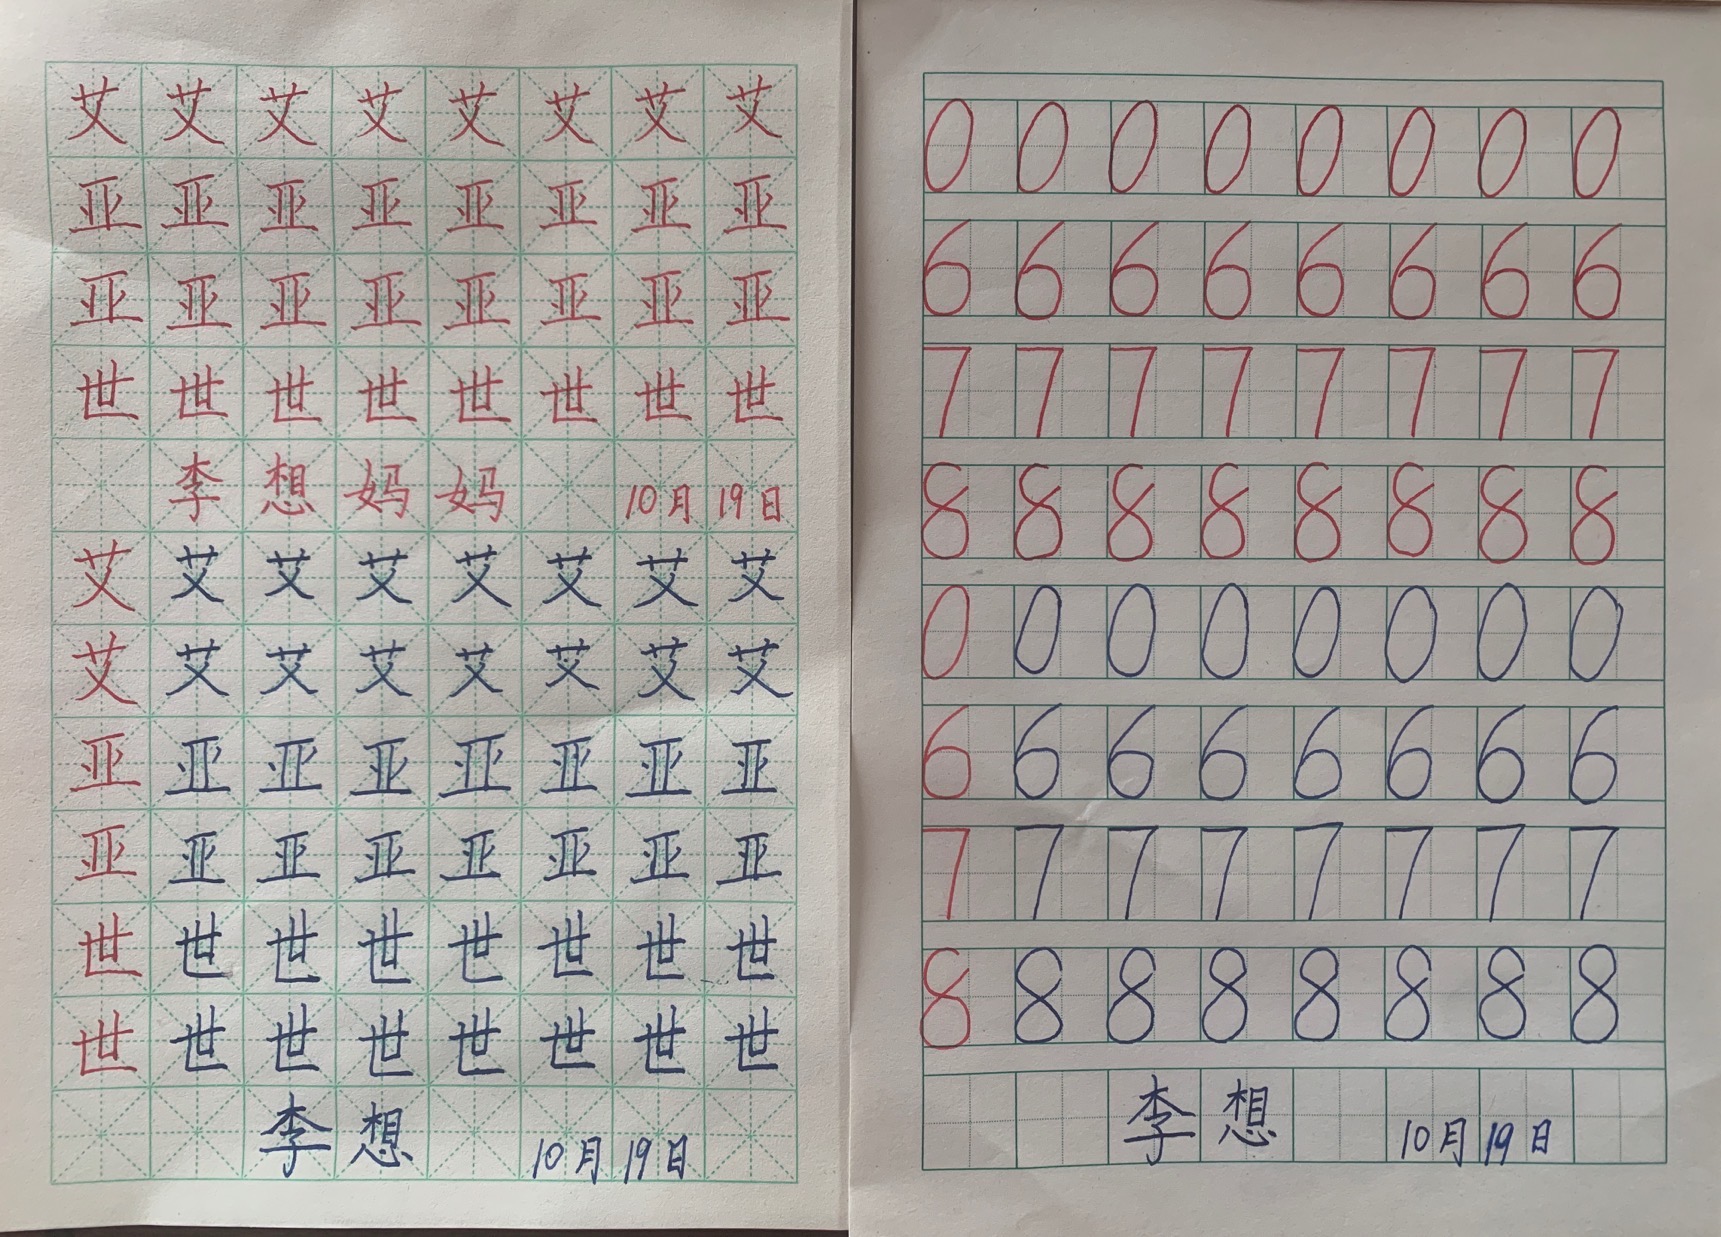 艾 艾 艾 艾 艾 艾 艾 艾
亚 亚 亚 亚 亚 亚 亚 亚
亚 亚 亚 亚 亚 亚 亚 亚
世 世 世 世 世 世 世 世
李 想 妈 妈 10月 19日
艾 艾 艾 艾 艾 艾 艾 艾
艾 艾 艾 艾 艾 艾 艾 艾
亚 亚 亚 亚 亚 亚 亚 亚
亚 亚 亚 亚 亚 亚 亚 亚
世 世 世 世 世 世 世 世
世 世 世 世 世 世 世 世
李 想 10月 19日
0 0 0 0 0 0 0 0
6 6 6 6 6 6 6 6
7 7 7 7 7 7 7 7
8 8 8 8 8 8 8 8
0 0 0 0 0 0 0 0
6 6 6 6 6 6 6 6
7 7 7 7 7 7 7 7
8 8 8 8 8 8 8 8
李 想 10月 19日